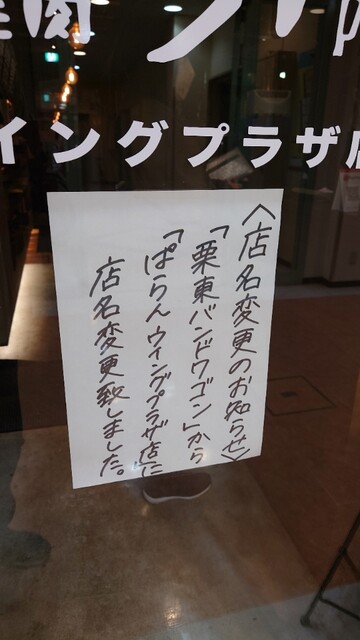 イングプラザ店
〈店名変更のお知らせ〉
「栗東バンドワゴン」から
「ぱらんウイングプラザ店」に
店名変更致しました。